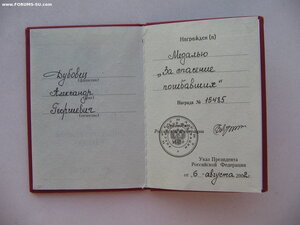 www.FORUMS-SU.com
Дубовец
(фамилия)
Александр
(имя)
Георгиевич
(отчество)
Награжден (а)
Медалью
„За спасение
погибавших"
Награда № 15485
Президент
Российской Федерации
Указ Президента
Российской Федерации
от „6" августа 2002